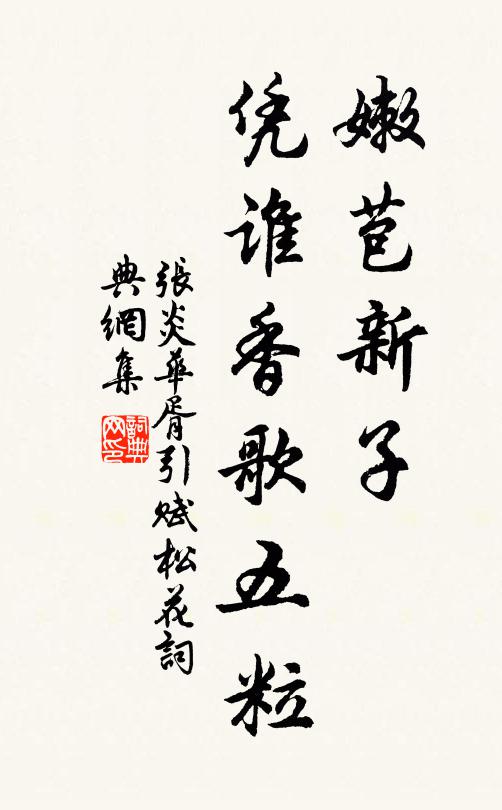 嫩苞新子
凭谁香歌五粒
張炎華胥引赋松花詞
典網集
詞典
网印